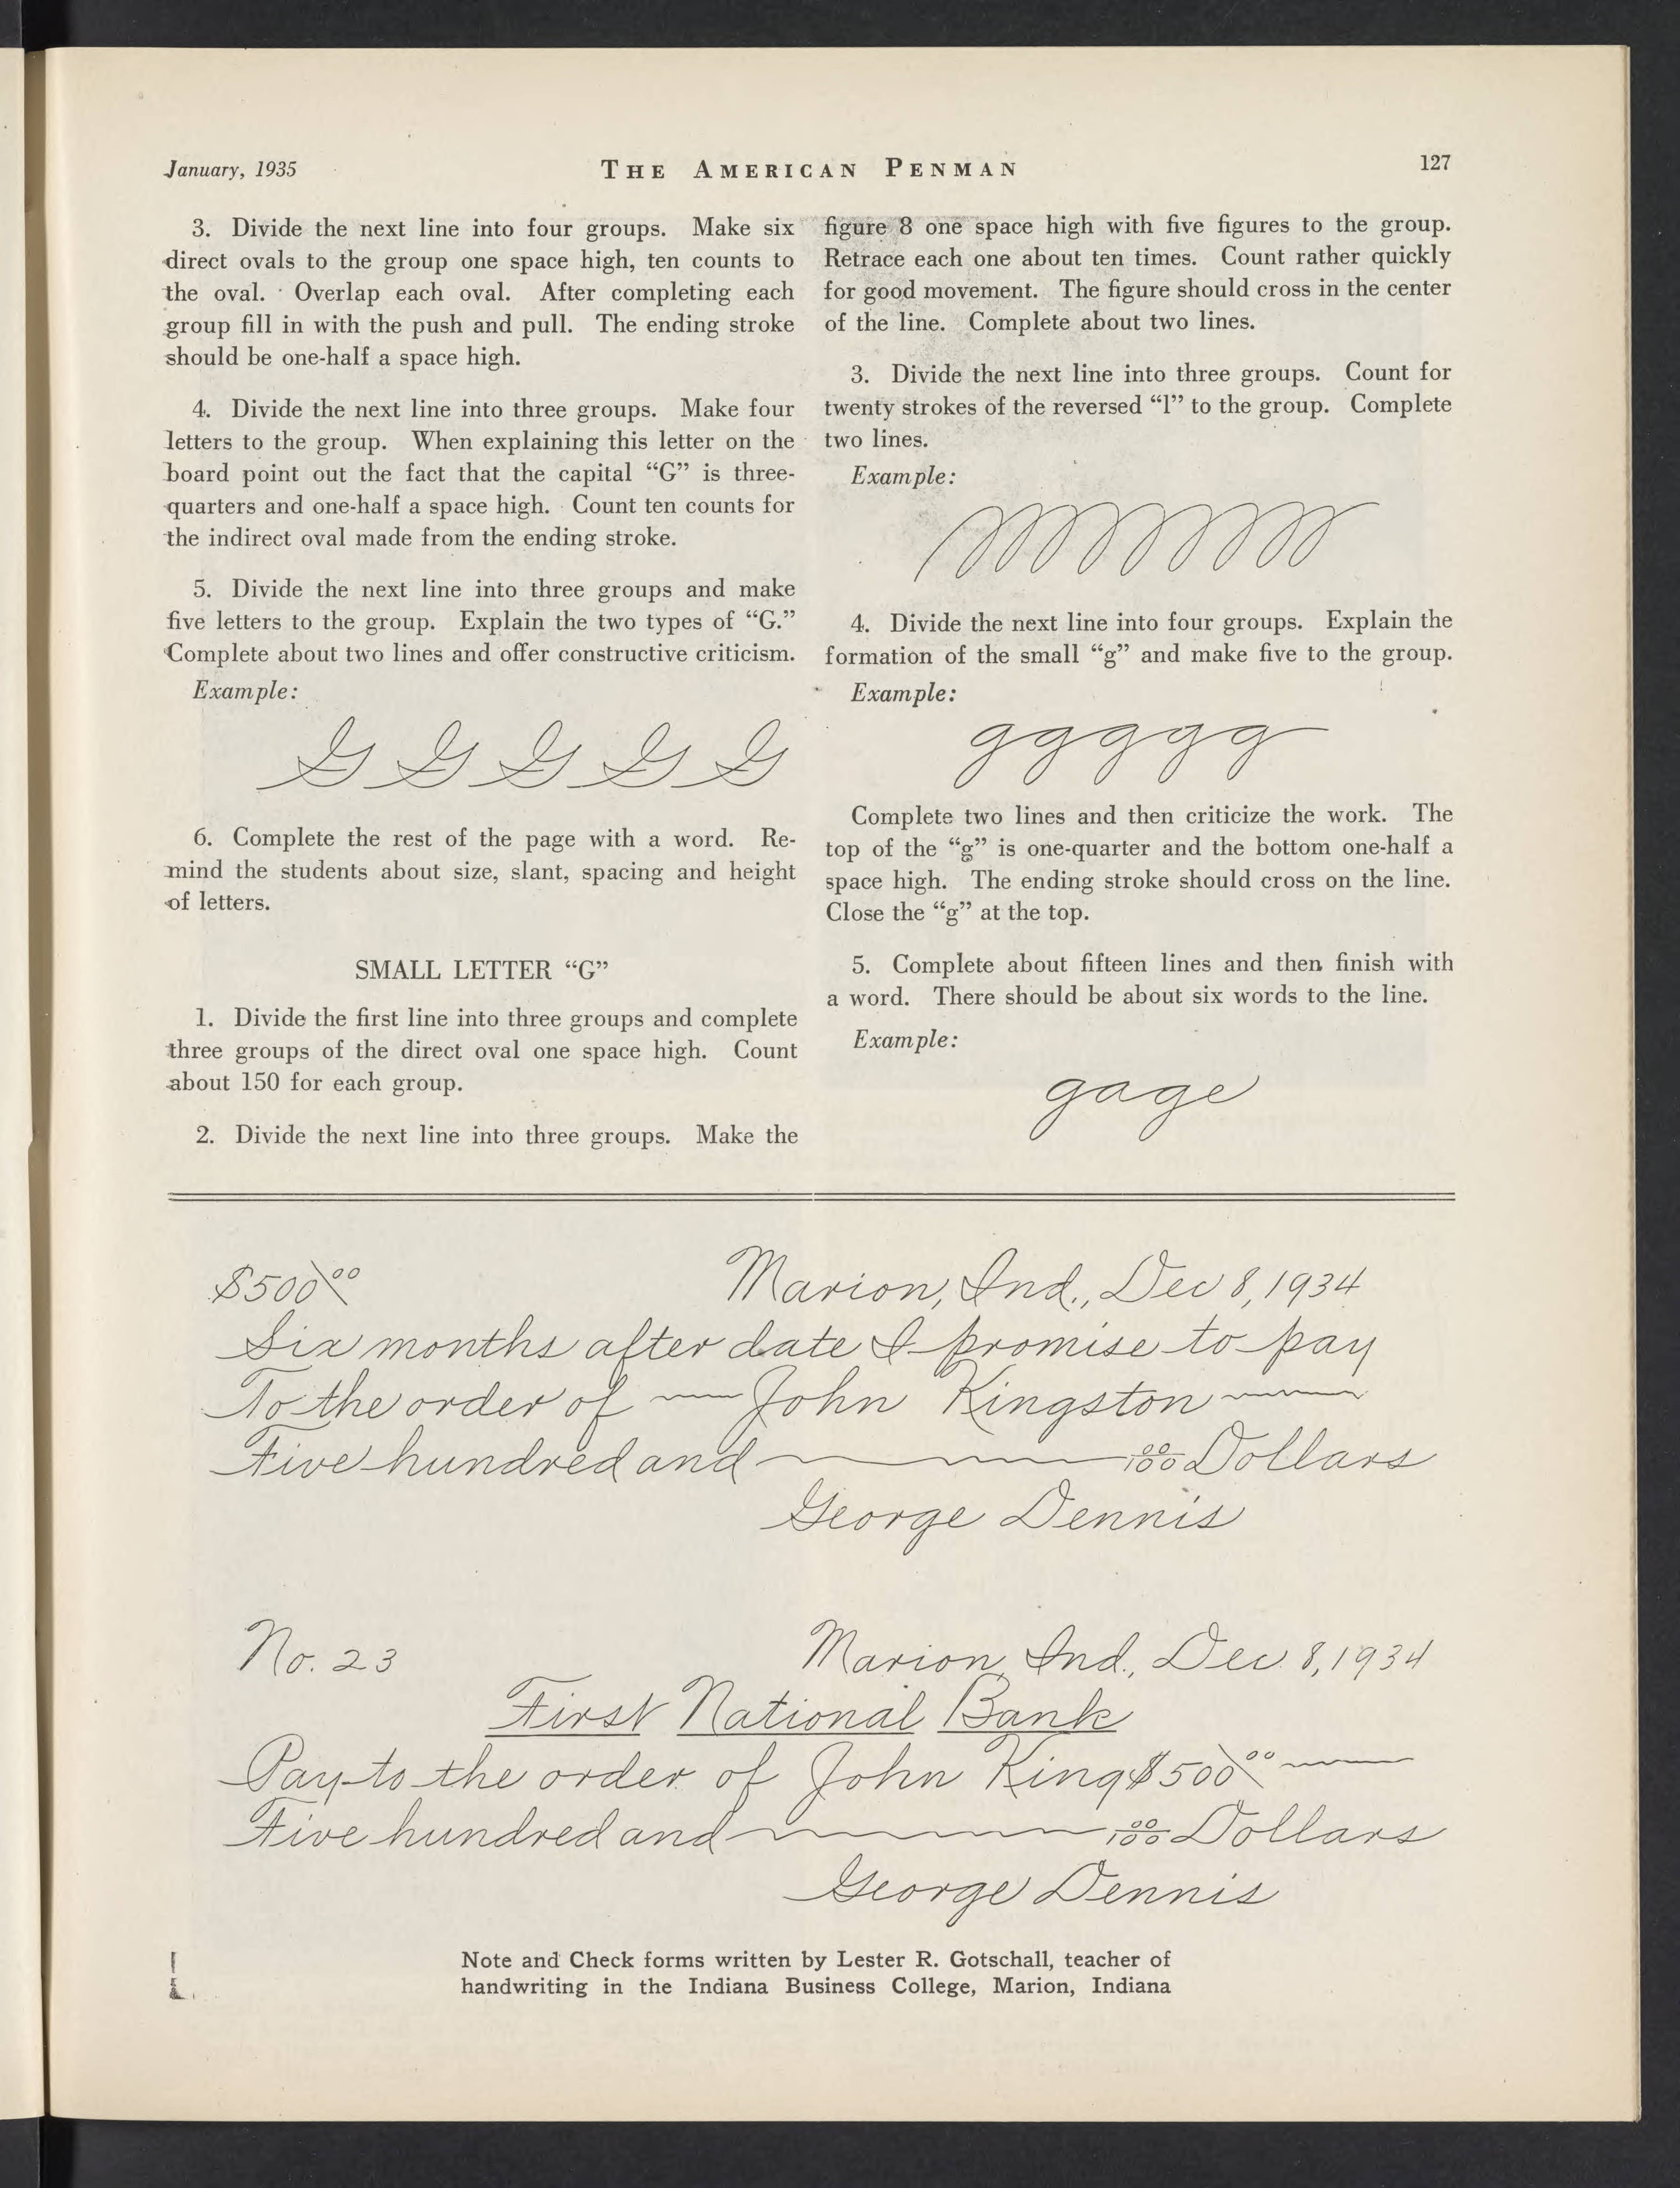 January, 1935
THE AMERICAN PENMAN
127
3. Divide the next line into four groups. Make six
direct ovals to the group one space high, ten counts to
the oval. Overlap each oval. After completing each
group fill in with the push and pull. The ending stroke
should be one-half a space high.
4. Divide the next line into three groups. Make four
letters to the group. When explaining this letter on the
board point out the fact that the capital “G” is three-
quarters and one-half a space high. Count ten counts for
the indirect oval made from the ending stroke.
5. Divide the next line into three groups and make
five letters to the group. Explain the two types of “G.”
Complete about two lines and offer constructive criticism.
Example:
G G G G G
6. Complete the rest of the page with a word. Re-
mind the students about size, slant, spacing and height
of letters.
SMALL LETTER “G”
1. Divide the first line into three groups and complete
three groups of the direct oval one space high. Count
about 150 for each group.
2. Divide the next line into three groups. Make the
figure 8 one space high with five figures to the group.
Retrace each one about ten times. Count rather quickly
for good movement. The figure should cross in the center
of the line. Complete about two lines.
3. Divide the next line into three groups. Count for
twenty strokes of the reversed “l” to the group. Complete
two lines.
Example:
4. Divide the next line into four groups. Explain the
formation of the small “g” and make five to the group.
Example:
ggggg
Complete two lines and then criticize the work. The
top of the “g” is one-quarter and the bottom one-half a
space high. The ending stroke should cross on the line.
Close the “g” at the top.
5. Complete about fifteen lines and then finish with
a word. There should be about six words to the line.
Example:
gage
$500 00 Marion, Ind., Dec 8, 1934
Six months after date I promise to pay
To the order of John Kingston
Five hundred and 00/100 Dollars
George Dennis
No. 23 Marion, Ind., Dec. 8, 1934
First National Bank
Pay to the order of John King $500 00
Five hundred and 00/100 Dollars
George Dennis
Note and Check forms written by Lester R. Gotschall, teacher of
handwriting in the Indiana Business College, Marion, Indiana